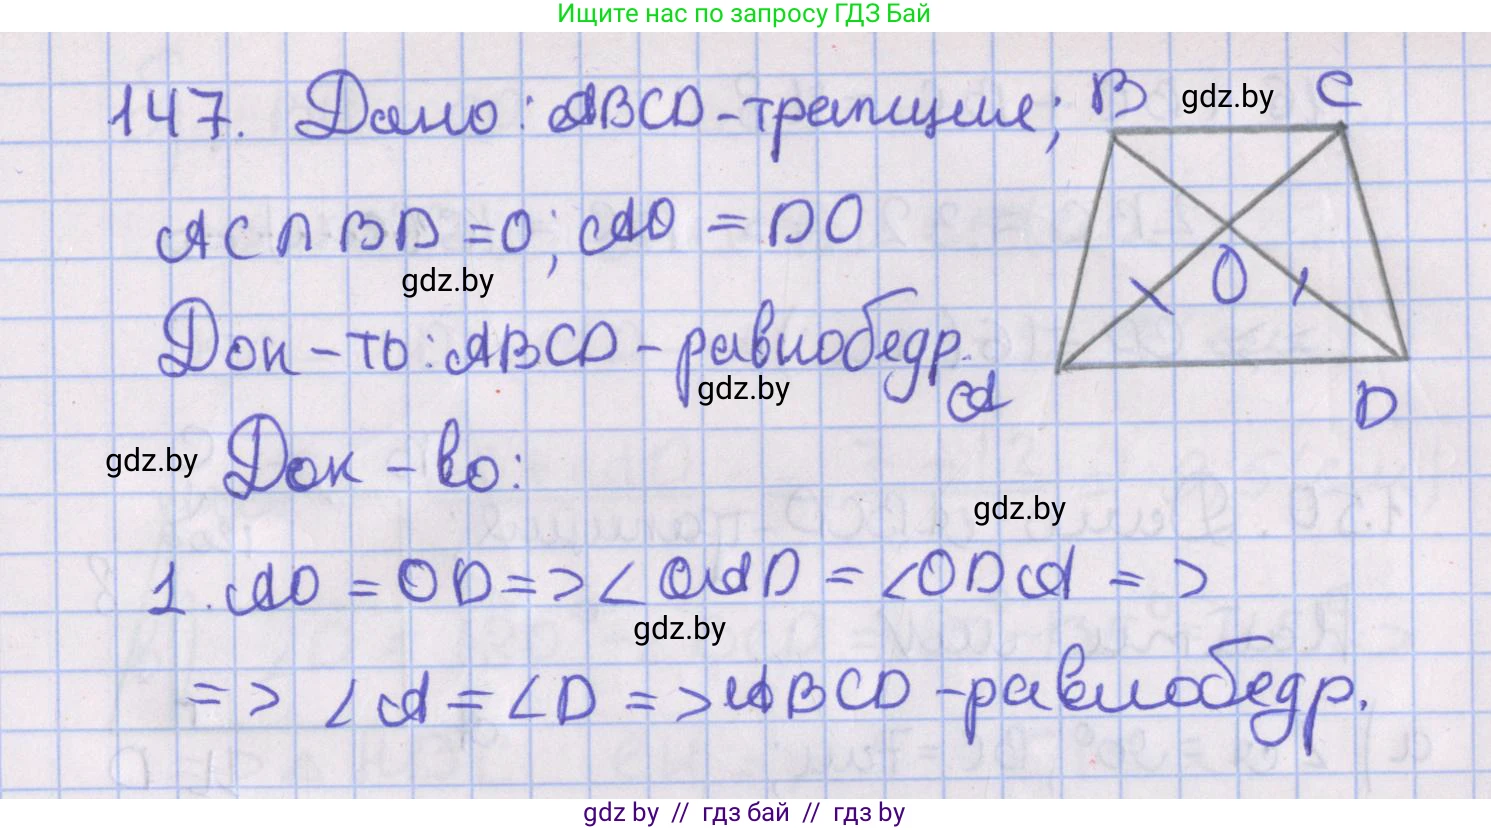 Ищите нас по запросу ГДЗ Бай
147. Дано: ABCD-трапеция; B gdz.by C
AC∩BD=O; AO=DO
gdz.by
O
Док-ть: ABCD-равнобедр.
gdz.by
A D
gdz.by Док-во:
gdz.by
1. AO=OD=>∠OAD=∠ODA=>
gdz.by
=>∠A=∠D=>ABCD-равнобедр.
gdz.by // гдз бай // гдз by